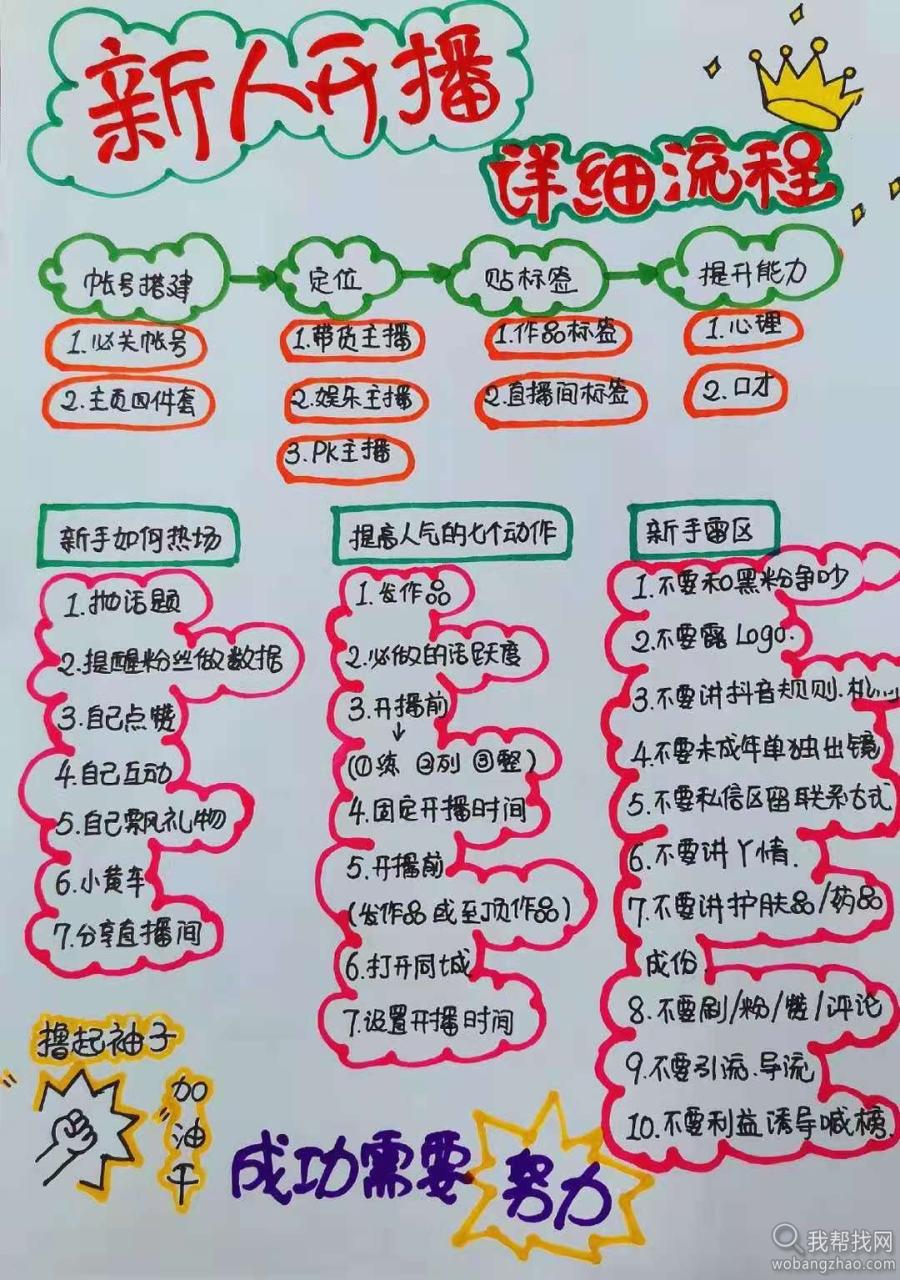 新人开播
详细流程
帐号搭建
定位
贴标签
提升能力
1.必关帐号
2.主页四件套
1.带货主播
2.娱乐主播
3.PK主播
1.作品标签
2.直播间标签
1.心理
2.口才
新手如何热场
1.抛话题
2.提醒粉丝做数据
3.自己点赞
4.自己互动
5.自己飘礼物
6.小黄车
7.分享直播间
提高人气的七个动作
1.发作品
2.必做的活跃度
3.开播前
↓
(①练 ②列 ③整)
4.固定开播时间
5.开播前
(发作品或至顶作品)
6.打开同城
7.设置开播时间
新手雷区
1.不要和黑粉争吵
2.不要露Logo.
3.不要讲抖音规则.
4.不要未成年单独出镜
5.不要私信区留联系方式
6.不要讲丫情.
7.不要讲护肤品/药品
成份.
8.不要刷/粉/赞/评论
9.不要引流.导流
10.不要利益诱导喊榜.
撸起袖子
加油干
成功需要努力
我帮找网
wobangzhao.com